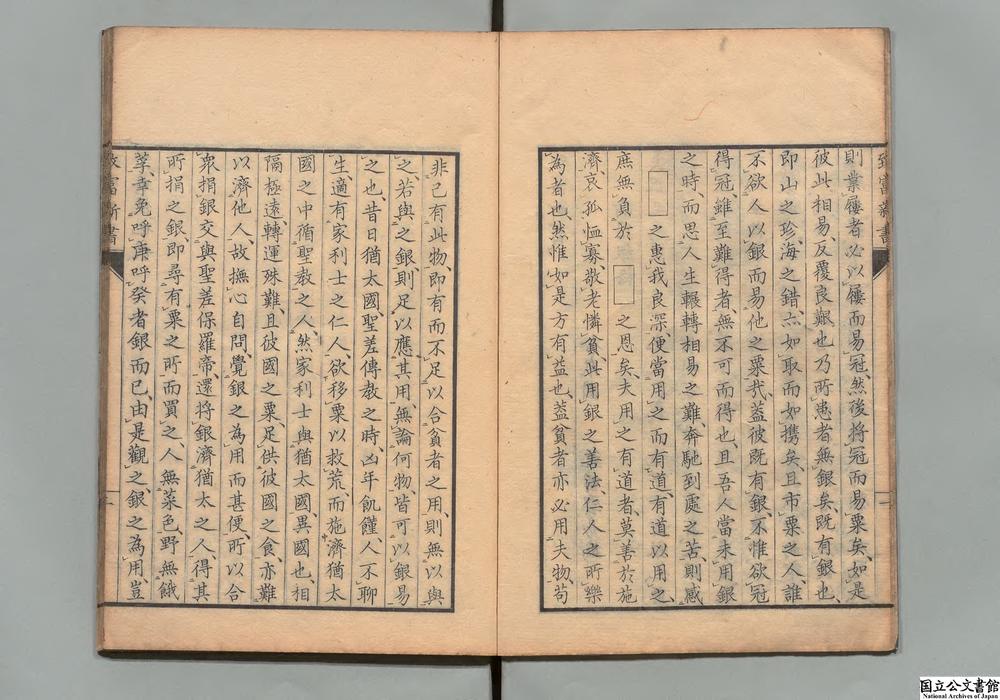 則業屨者必以屨而易冠、然後將冠而易粟矣、如是
彼此相易、反覆良艱也、乃所患者無銀矣、既有銀也、
即山之珍、海之錯、亦如取而如携矣、且市粟之人、誰
不欲人以銀而易他之粟哉、蓋彼既有銀、不惟欲冠
得冠、雖至難得者、無不可而得也、且吾人當未用銀
之時、而思人生輾轉相易之難、奔馳到處之苦、則感
□之惠我良深、便當用之而有道、有道以用之
庶無負於□之恩矣、夫用之有道者、莫善於施
濟、哀孤恤寡、敬老憐貧、此用銀之善法、仁人之所樂
為者也、然惟如是方有益也、蓋貧者亦必用夫物、苟
非己有此物、即有而不足以合貧者之用、則無以與
之、若與之銀、則足以應其用、無論何物、皆可以銀易
之也、昔日猶太國、聖差傳教之時、凶年飢饉、人不聊
生、適有家利士之仁人、欲移粟以救荒、而施濟猶太
國之中循聖教之人、然家利士與猶太國、異國也、相
隔極遠、轉運殊難、且彼國之粟、足供彼國之食、亦難
以濟他人、故撫心自問、覺銀之為用而甚便、所以合
衆捐銀、交與聖差保羅帝、還將銀濟猶太之人、得其
所捐之銀、即尋有粟之所而買之、人無菜色、野無餓
莩、幸免呼庚呼癸者、銀而已、由是觀之、銀之為用、豈
致富新書
一
国立公文書館
National Archives of Japan